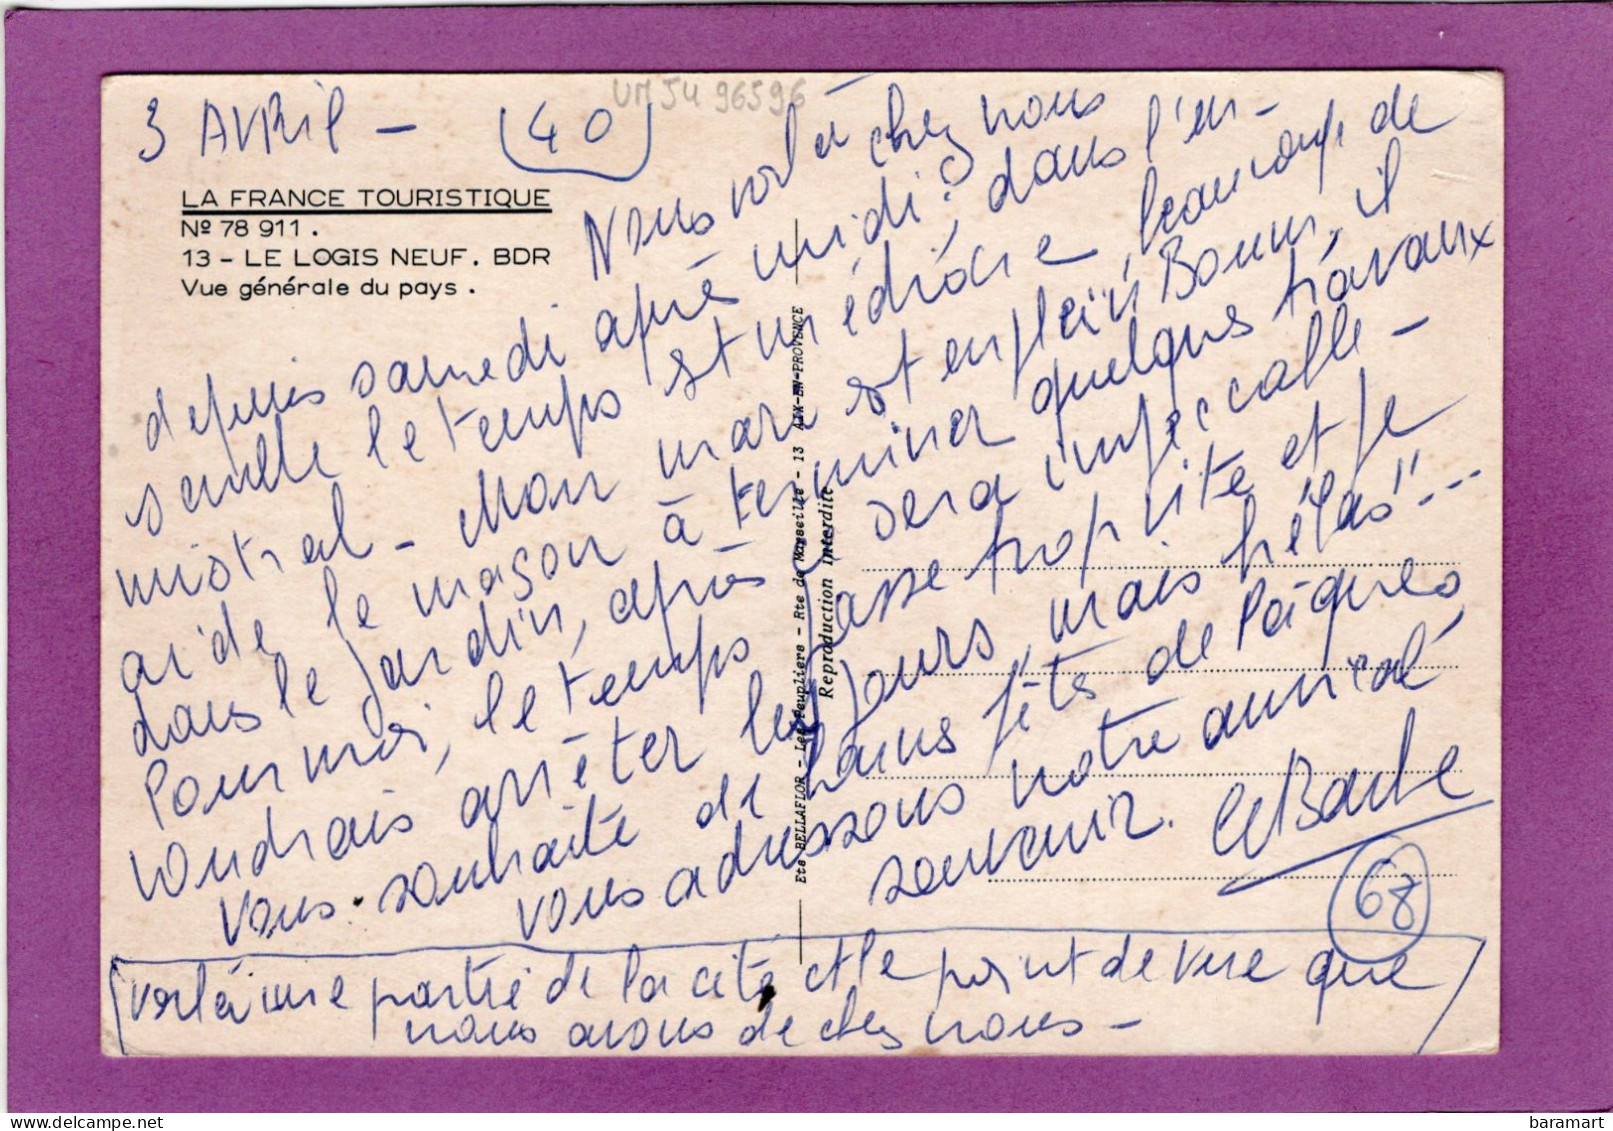 3 AVRIL - (40)
UM 54 96596
LA FRANCE TOURISTIQUE
Nº 78 911.
13 - LE LOGIS NEUF. BDR
Vue générale du pays.
Nous voilà chez nous
depuis samedi après midi, dans l'en-
semble le temps est médiocre, beaucoup de
mistral - Mon mari est en plein Boum, il
aide le maçon à terminer quelques travaux
dans le jardin, après sera impeccable -
Pour moi, le temps passe trop vite et je
voudrais arrêter les jours, mais hélas"...
Vous souhaite de bonnes fêtes de Pâques,
vous adressons notre amical
souvenir.
68
voilà une partie de la cité et le point de vue que
nous avons de chez nous -
Ets BELLAFLOR - Les Peupliers - Rte de Marseille - 13 AIX-EN-PROVENCE
Reproduction interdite
www.delcampe.net
baramart